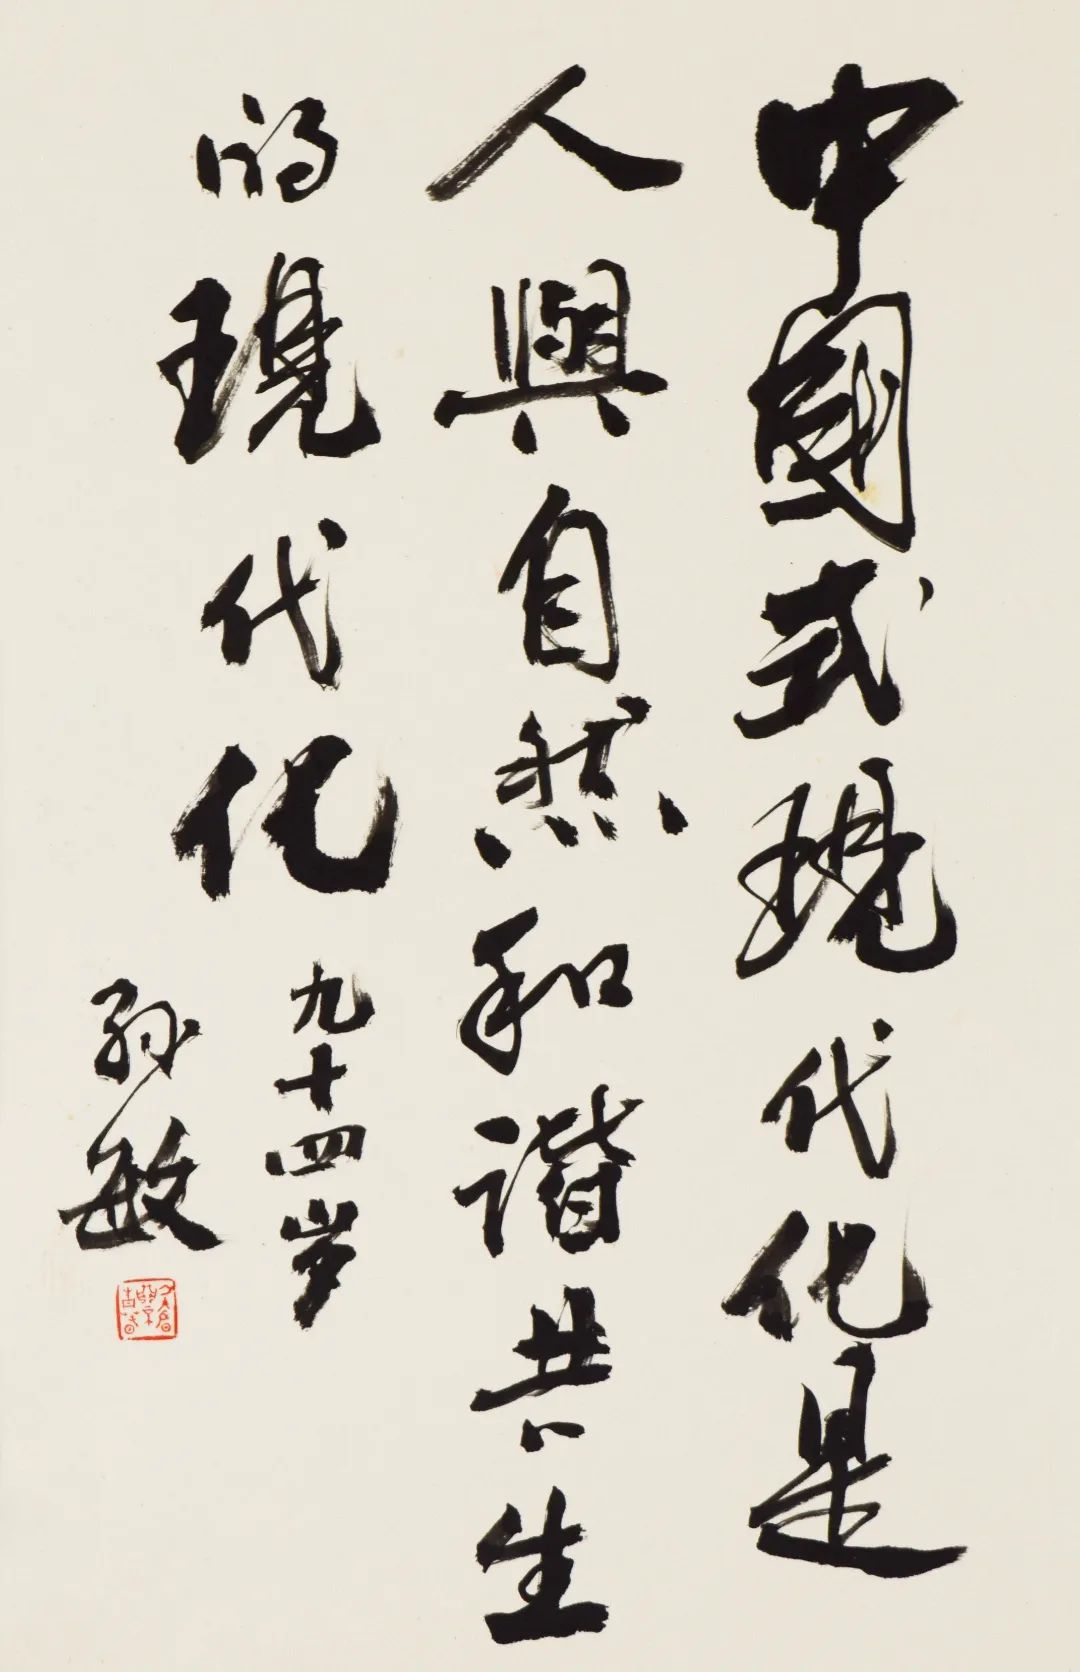 中國式現代化是
人與自然和谐共生
的現代化
九十四岁
孙敏